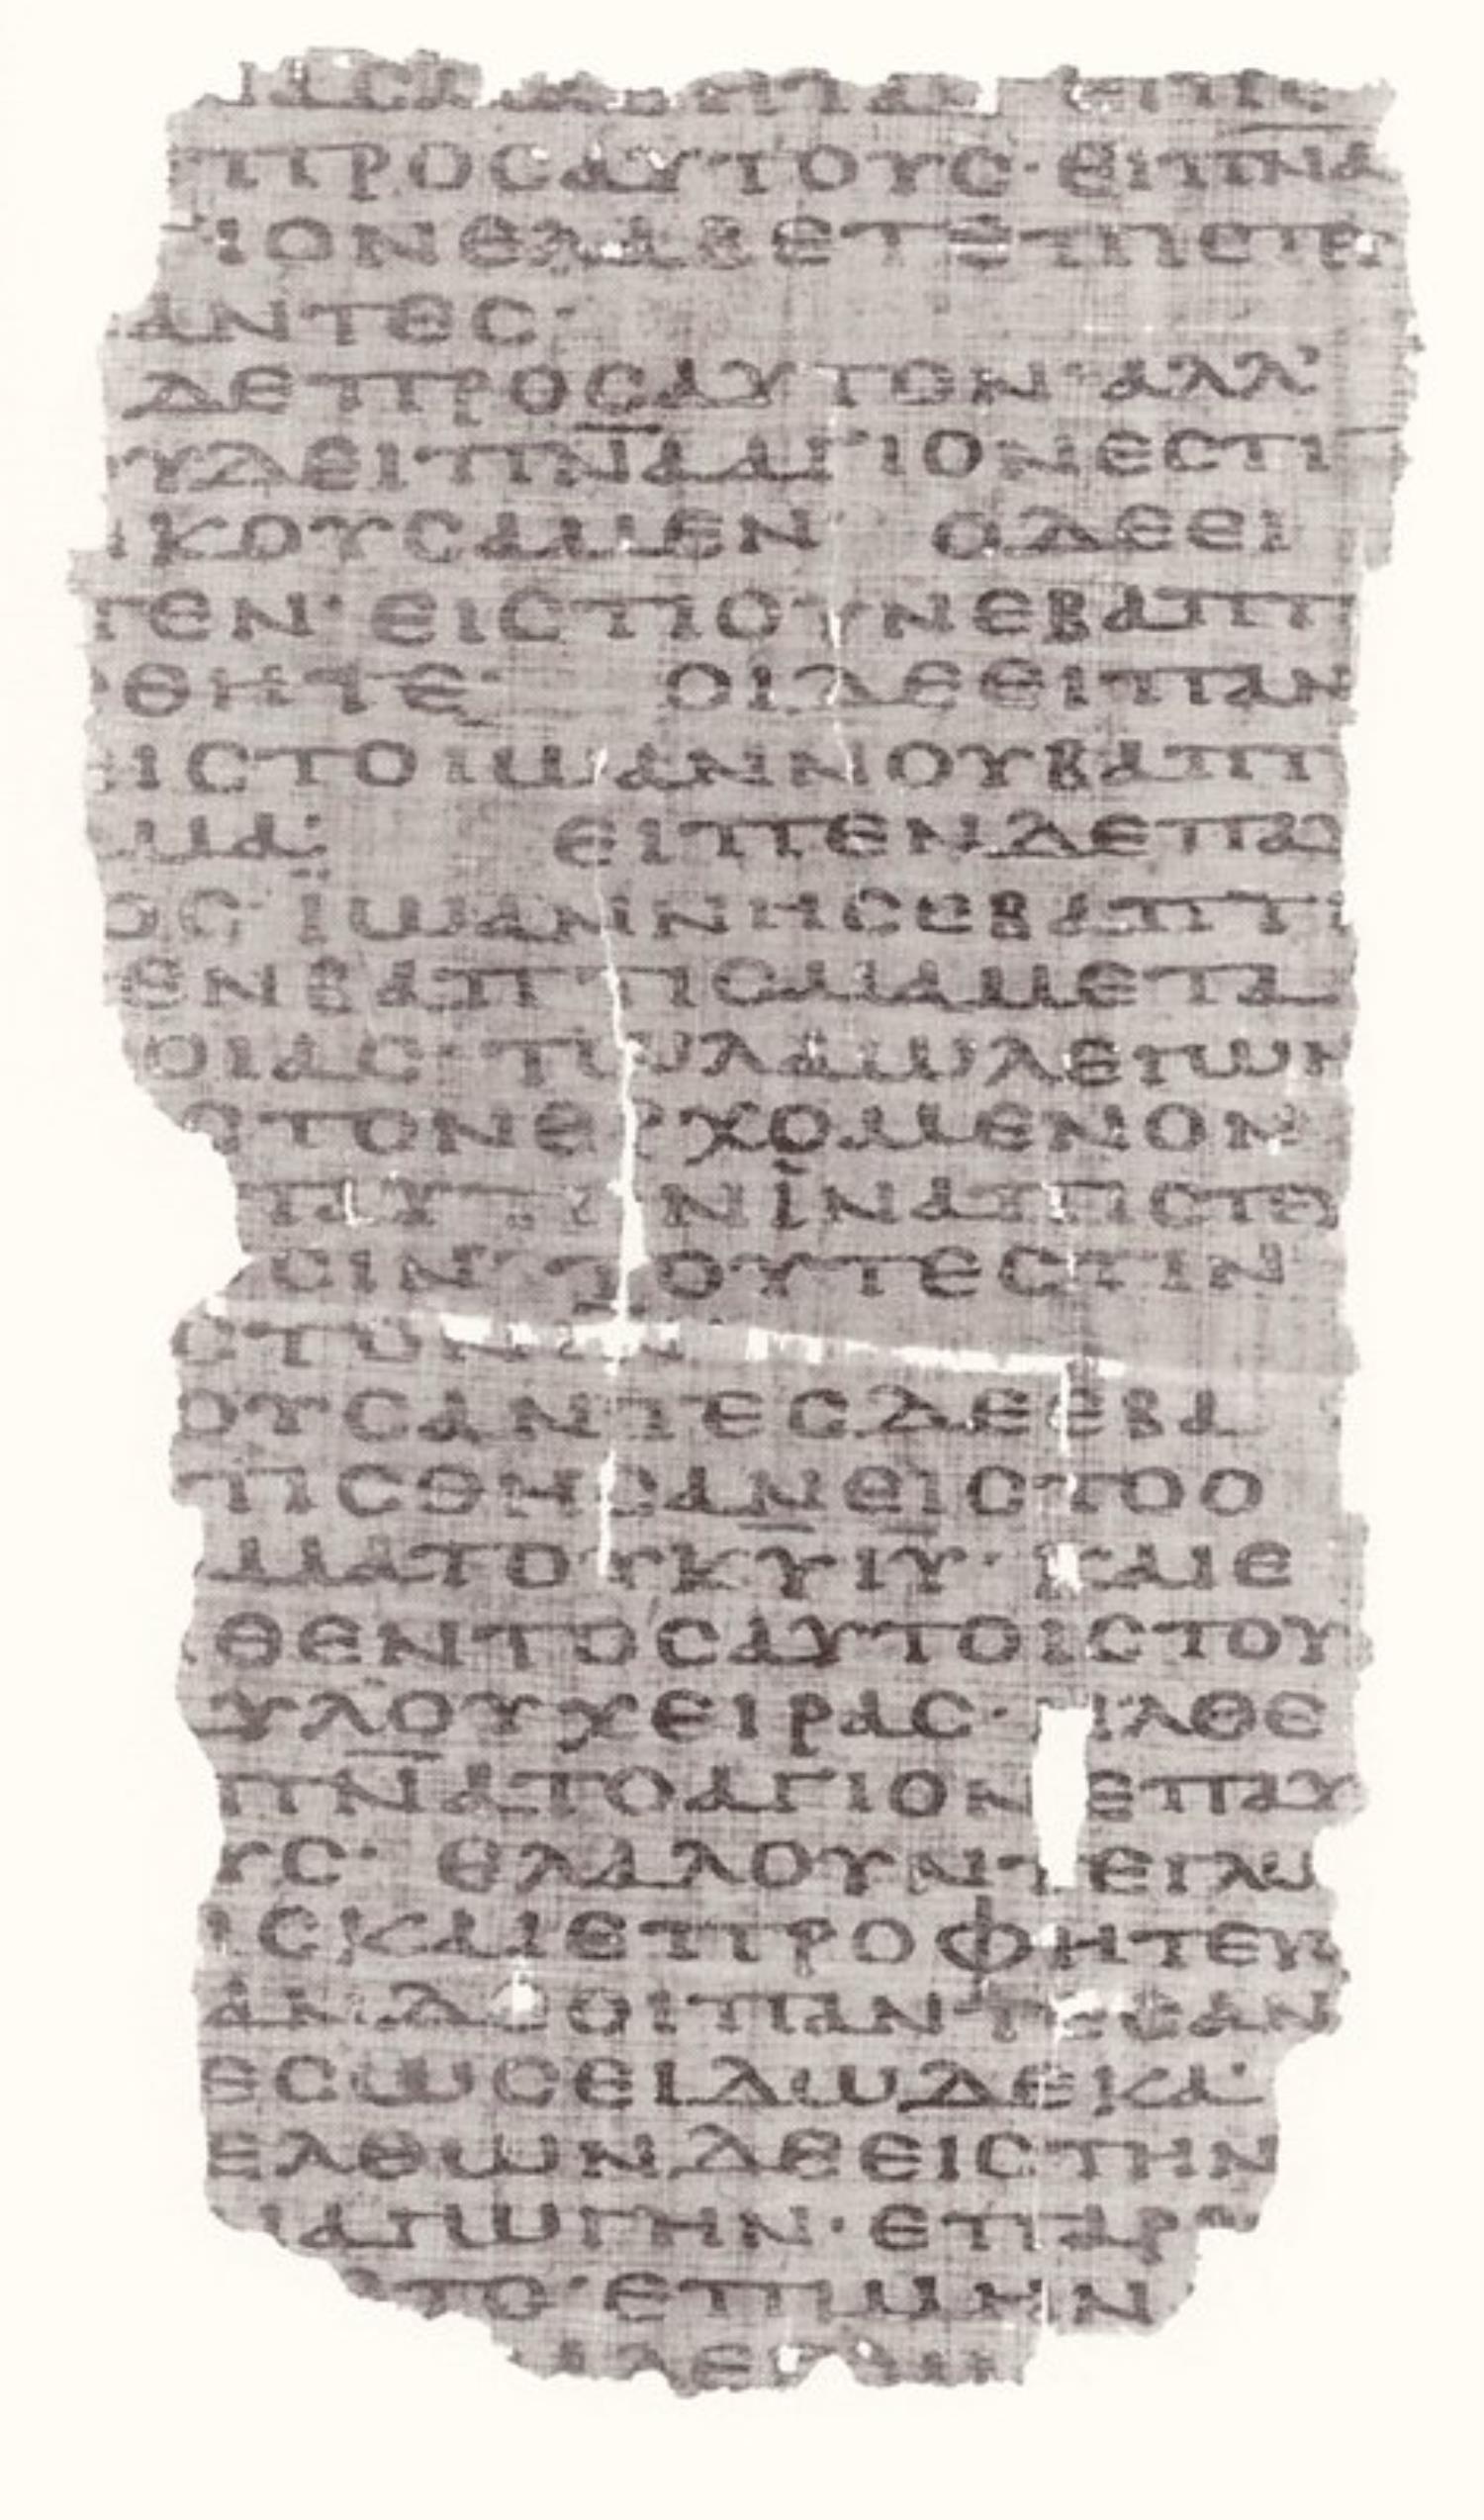 ΠΡΟCΑΥΤΟΥC· ΕΙΠΝΑ
ΓΙΟΝΕΛΑΒΕΤΕΠΙCΤΕΥ
ΑΝΤΕC·
ΔΕΠΡΟCΑΥΤΟΝ· ΑΛΛ’
ΥΔΕΙΠ̅Ν̅Α̅ΑΓΙΟΝΕCΤΙ
ΚΟΥCΑΜΕΝ ΟΔΕΕΙ
ΠΕΝ· ΕΙCΤΙΟΥΝΕΒΑΠΤΙ
ΘΗΤΕ· ΟΙΔΕΕΙΠΑΝ
ΕΙCΤΟΙΩΑΝΝΟΥΒΑΠΤΙ
ΜΑ· ΕΙΠΕΝΔΕΠΑΥ
ΟC· ΪΩΑΝΝΗCΕΒΑΠΤΙ
ΕΝΒΑΠΤΙCΜΑΜΕΤΑ
ΟΙΑC· ΤΩΛΑΩΛΕΓΩΝ
ΙCΤΟΝΕΡΧΟΜΕΝΟΝ
ΤΑΥΤΟΝΪΝΑΠΙCΤΕΥ
CΙΝ· ΤΟΥΤΕCΤΙΝ
CΤΟΝΙ̅Ν̅
ΟΥCΑΝΤΕCΔΕΕΒΑ
ΤΙCΘΗCΑΝΕΙCΤΟΟ
ΜΑΤΟΥΚ̅Υ̅Ι̅Υ̅· ΚΑΙΕ
ΘΕΝΤΟCΑΥΤΟΙCΤΟΥ
ΥΛΟΥΧΕΙΡΑC· ΗΛΘΕ
Π̅Ν̅Α̅ΤΟΑΓΙΟΝΕΠΑΥ
ΥC· ΕΛΑΛΟΥΝΤΕΓΛΩ
ΙCΚΑΙΕΠΡΟΦΗΤΕΥ
ΑΝΔΕΟΙΠΑΝΤΕCΑΝ
ΕCΩCΕΙΔΩΔΕΚΑ·
ΕΛΘΩΝΔΕΕΙCΤΗΝ
ΝΑΓΩΓΗΝ· ΕΠΑΡΡΗ
ΤΟ· ΕΠΙΜΗΝ
ΑΛΕΓΟΜ